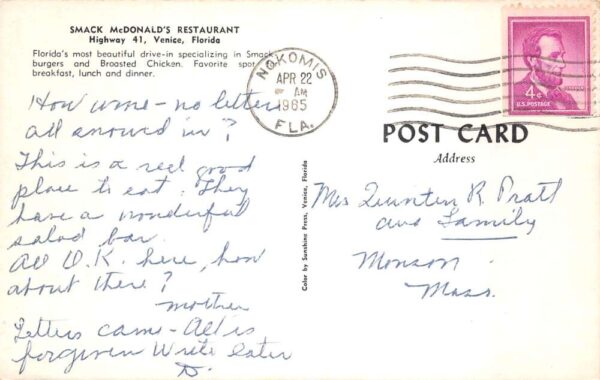 SMACK McDONALD'S RESTAURANT
Highway 41, Venice, Florida
Florida's most beautiful drive-in specializing in Smack
burgers and Broasted Chicken. Favorite spot
breakfast, lunch and dinner.
How come - no letters
all snowed in?
This is a real good
place to eat. They
have a wonderful
salad bar.
All O.K. here, how
about there?
mother
Letters came - All is
forgiven Write later
NOKOMIS
APR 22
AM
1965
FLA.
4¢
U.S. POSTAGE
POST CARD
Address
Color by Sunshine Press, Venice, Florida
Mrs Quinten R. Pratt
and Family
Monson
Mass.